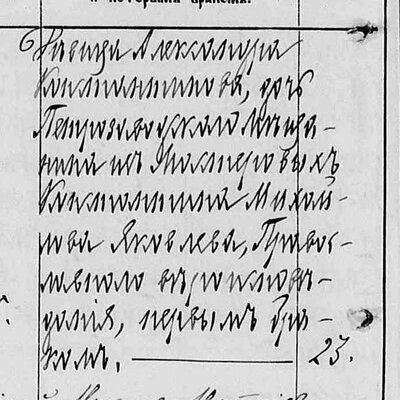 и которымъ бракомъ.
Дѣвица Александра
Константинова, дочь
Петрозаводскаго мѣща-
нина изъ Мастеровыхъ
Константина Михай-
лова Яковлева, Правос-
лавнаго вѣроисповѣ-
данія, первымъ бра-
комъ. — 23.